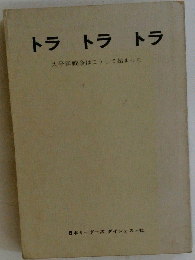 トラ トラ トラ
太平洋戦争はこうして始まった
日本リーダーズ ダイジェスト社